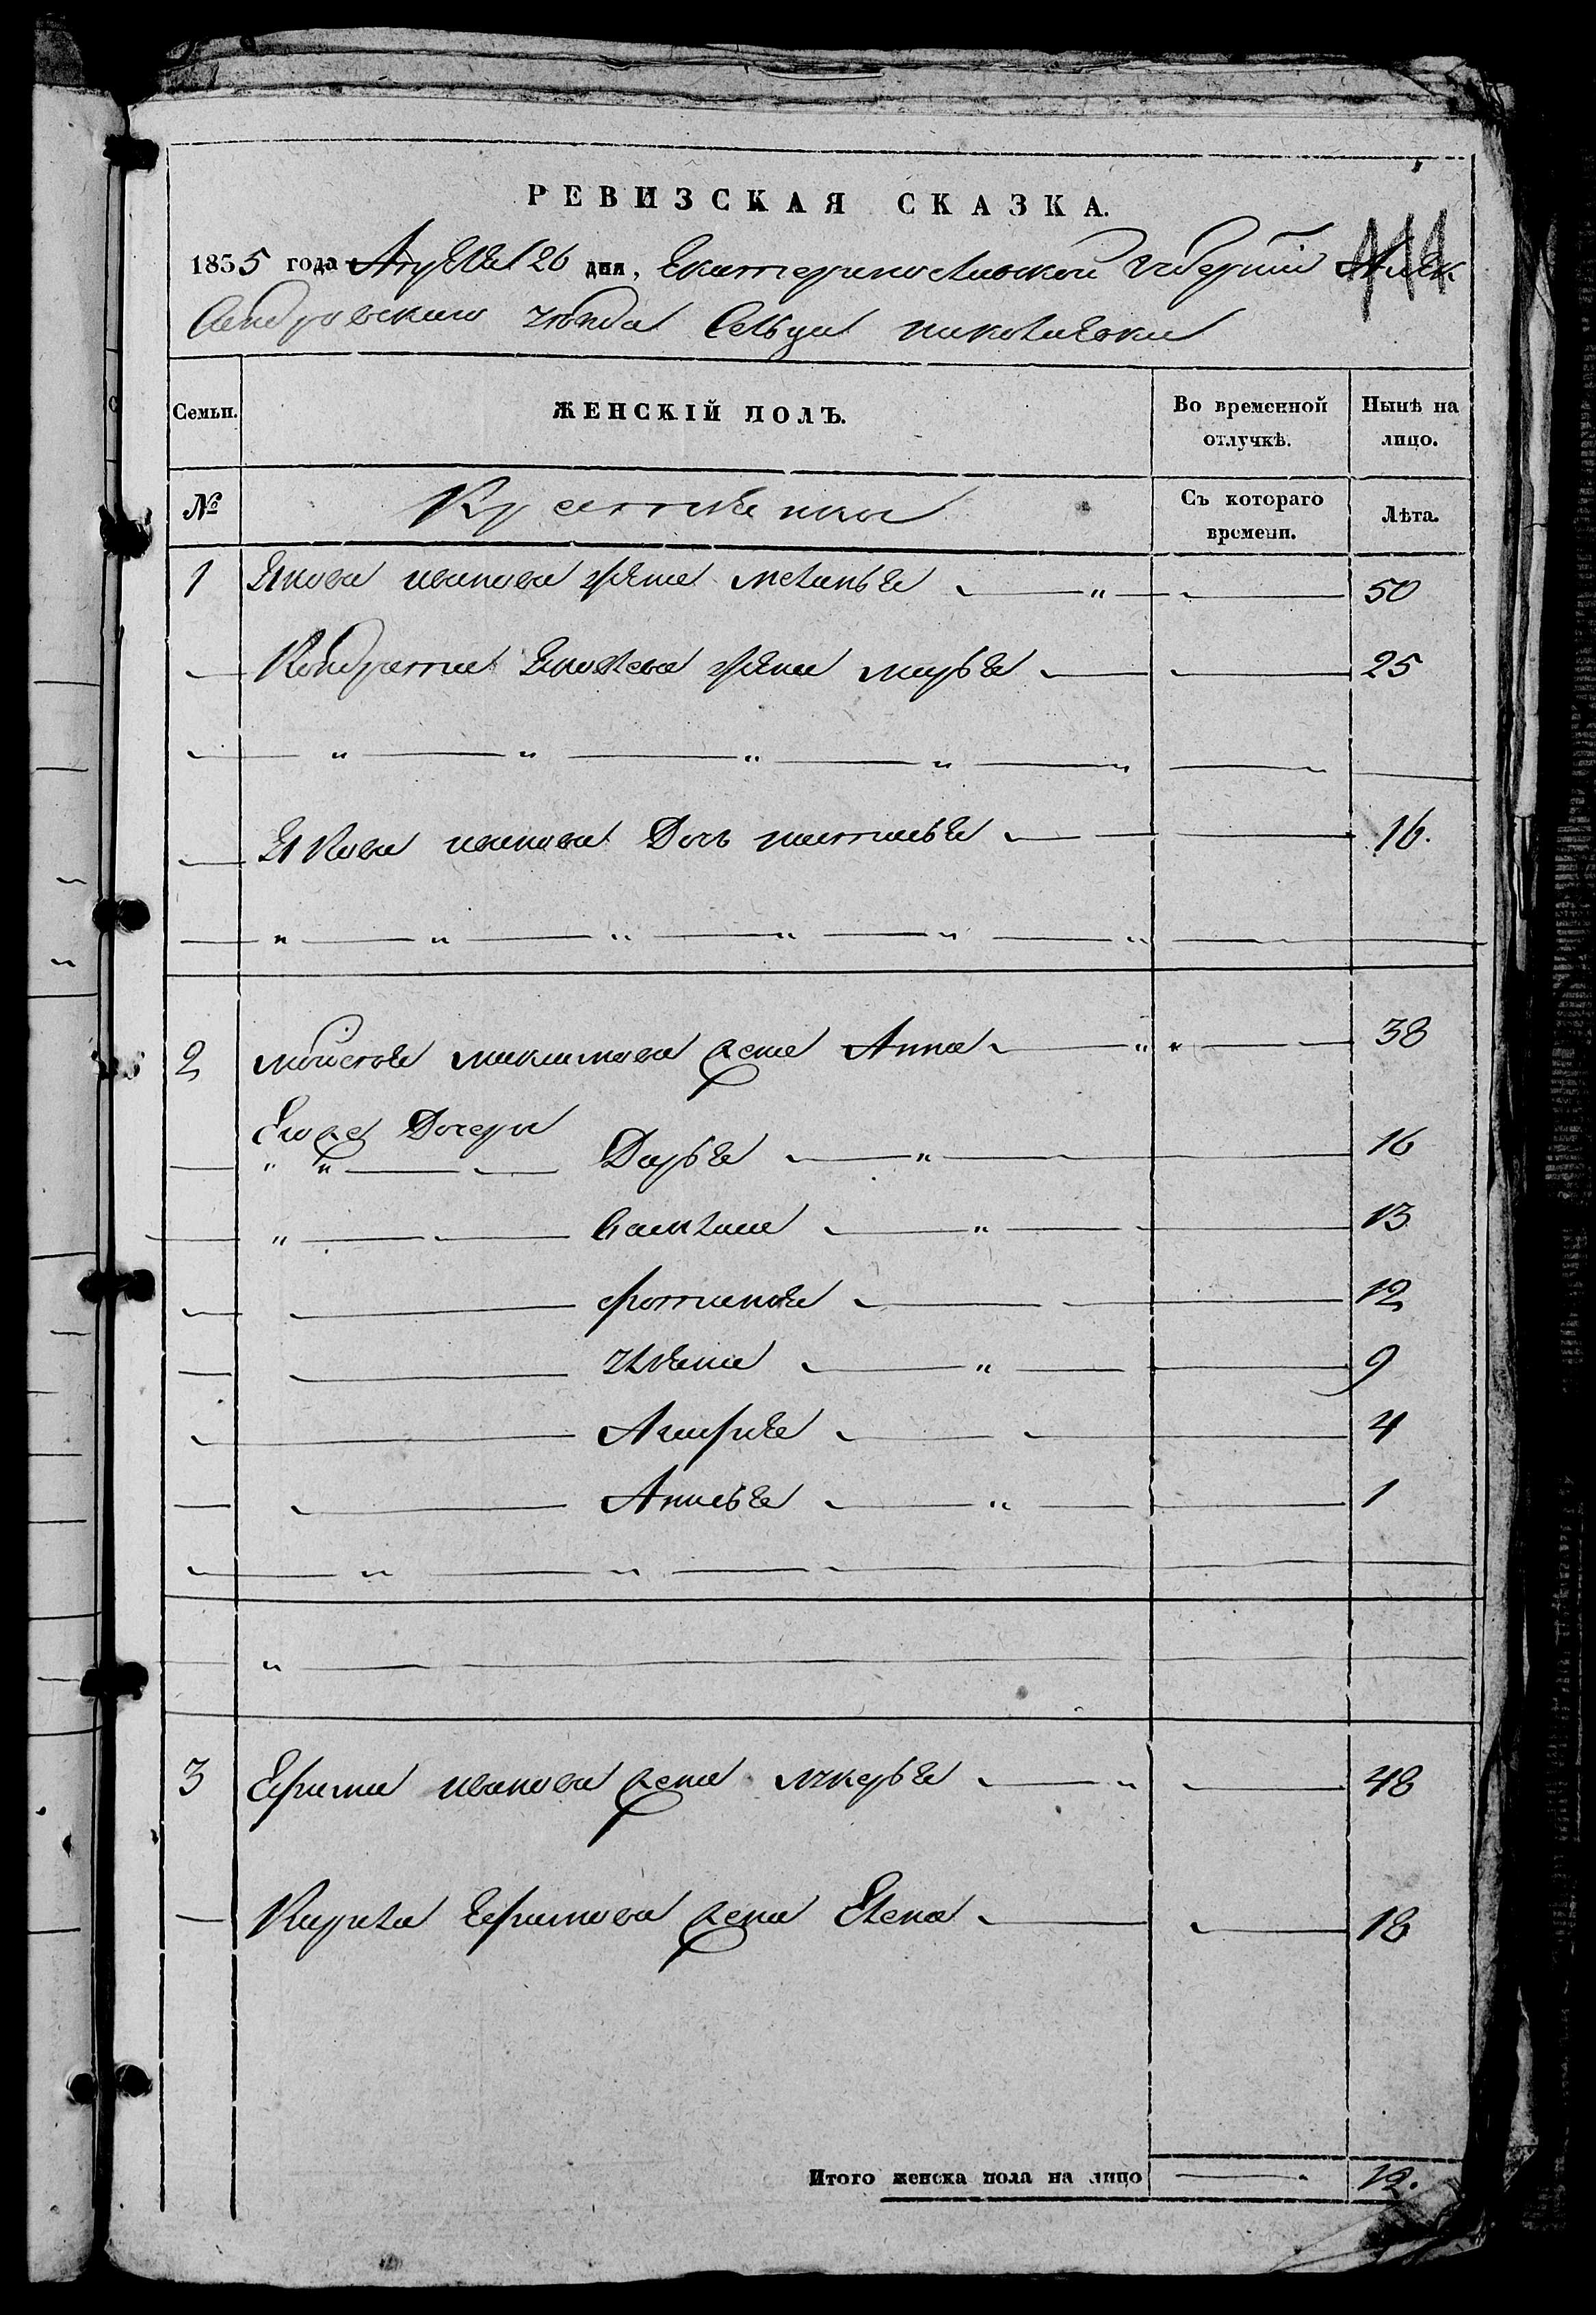 РЕВИЗСКАЯ СКАЗКА.
1855 года Апреля 26 дня, Екатеринославской Губернии Алек
сандровского уезда Сельца николаевки
Семьи. ЖЕНСКІЙ ПОЛЪ. Во временной отлучкѣ. Нынѣ на лицо.
№ Крестьяне Съ котораго времени. Лѣта.
1 Якова иванова жена меланья 50
Кондратия Яковлева жена марья 25
Якова иванова Дочь наталья 16.
2 мойсея максимова жена Анна 38
Его же Дочери
Дарья 16
13
фотинья 12
улияна 9
Агафия 4
1
3 Ефима иванова жена лукерья 48
Кирила Ефимова жена Елена 18
Итого женска пола на лицо 12.